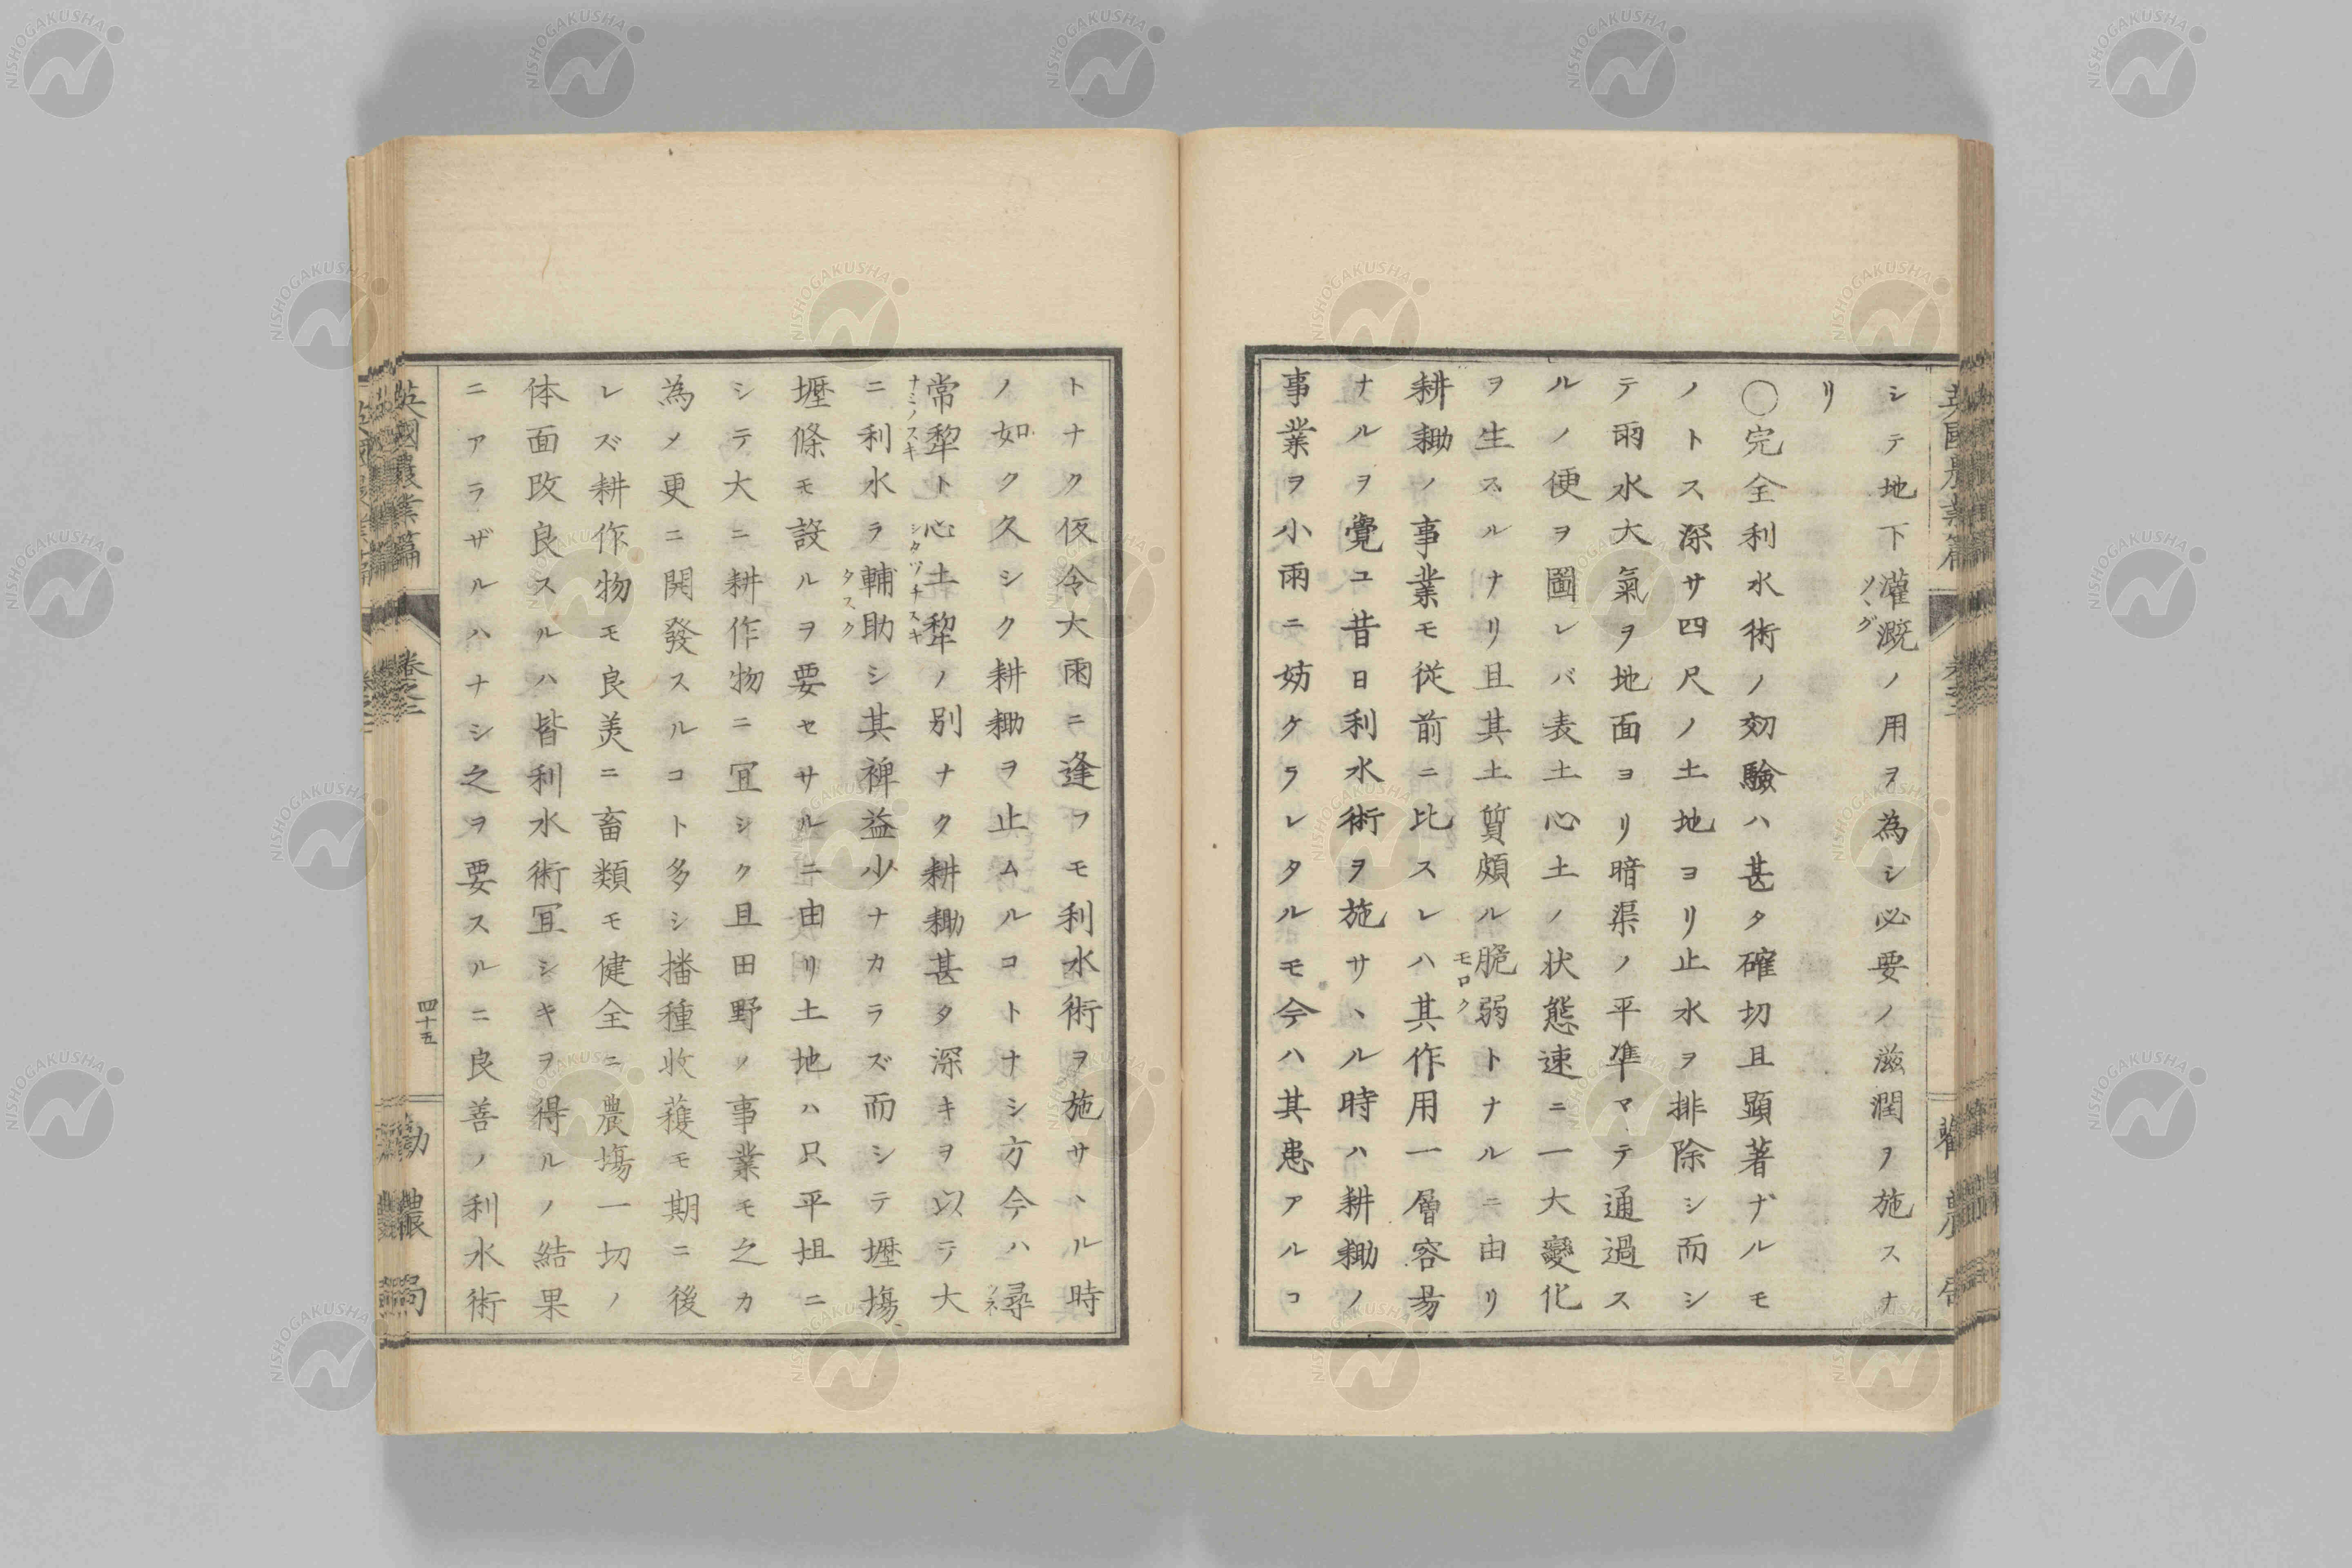 シテ地下灌漑ノ用ヲ為シ必要ノ滋潤ヲ施スナ
ソヽグ
リ
○完全利水術ノ効驗ハ甚タ確切且顕著ナルモ
ノトス深サ四尺ノ土地ヨリ止水ヲ排除シ而シ
テ雨水大氣ヲ地面ヨリ暗渠ノ平準マテ通過ス
ルノ便ヲ圖レバ表土心土ノ状態速ニ一大變化
ヲ生スルナリ且其土質頗ル脆弱トナルニ由リ
モロク
耕耡ノ事業モ従前ニ比スレハ其作用一層容易
ナルヲ覺ユ昔日利水術ヲ施サヽル時ハ耕耡ノ
事業ヲ小雨ニ妨ケラレタルモ今ハ其患アルコ
トナク仮令大雨ニ逢フモ利水術ヲ施サヽル時
ノ如ク久シク耕耡ヲ止ムルコトナシ方今ハ尋
ツネ
常犂ト心土犂ノ別ナク耕耡甚タ深キヲ以テ大
ナミノスキ
シタツチスキ
ニ利水ヲ輔助シ其裨益少ナカラズ而シテ壢塲
タスク
壢條モ設ルヲ要セサルニ由リ土地ハ只平坦ニ
シテ大ニ耕作物ニ冝シク且田野ノ事業モ之カ
為メ更ニ開發スルコト多シ播種收穫モ期ニ後
レズ耕作物モ良美ニ畜類モ健全ニ農塲一切ノ
体面改良スルハ皆利水術冝シキヲ得ルノ結果
ニアラザルハナシ之ヲ要スルニ良善ノ利水術
英國農業篇
卷之二
四十五
勸農局